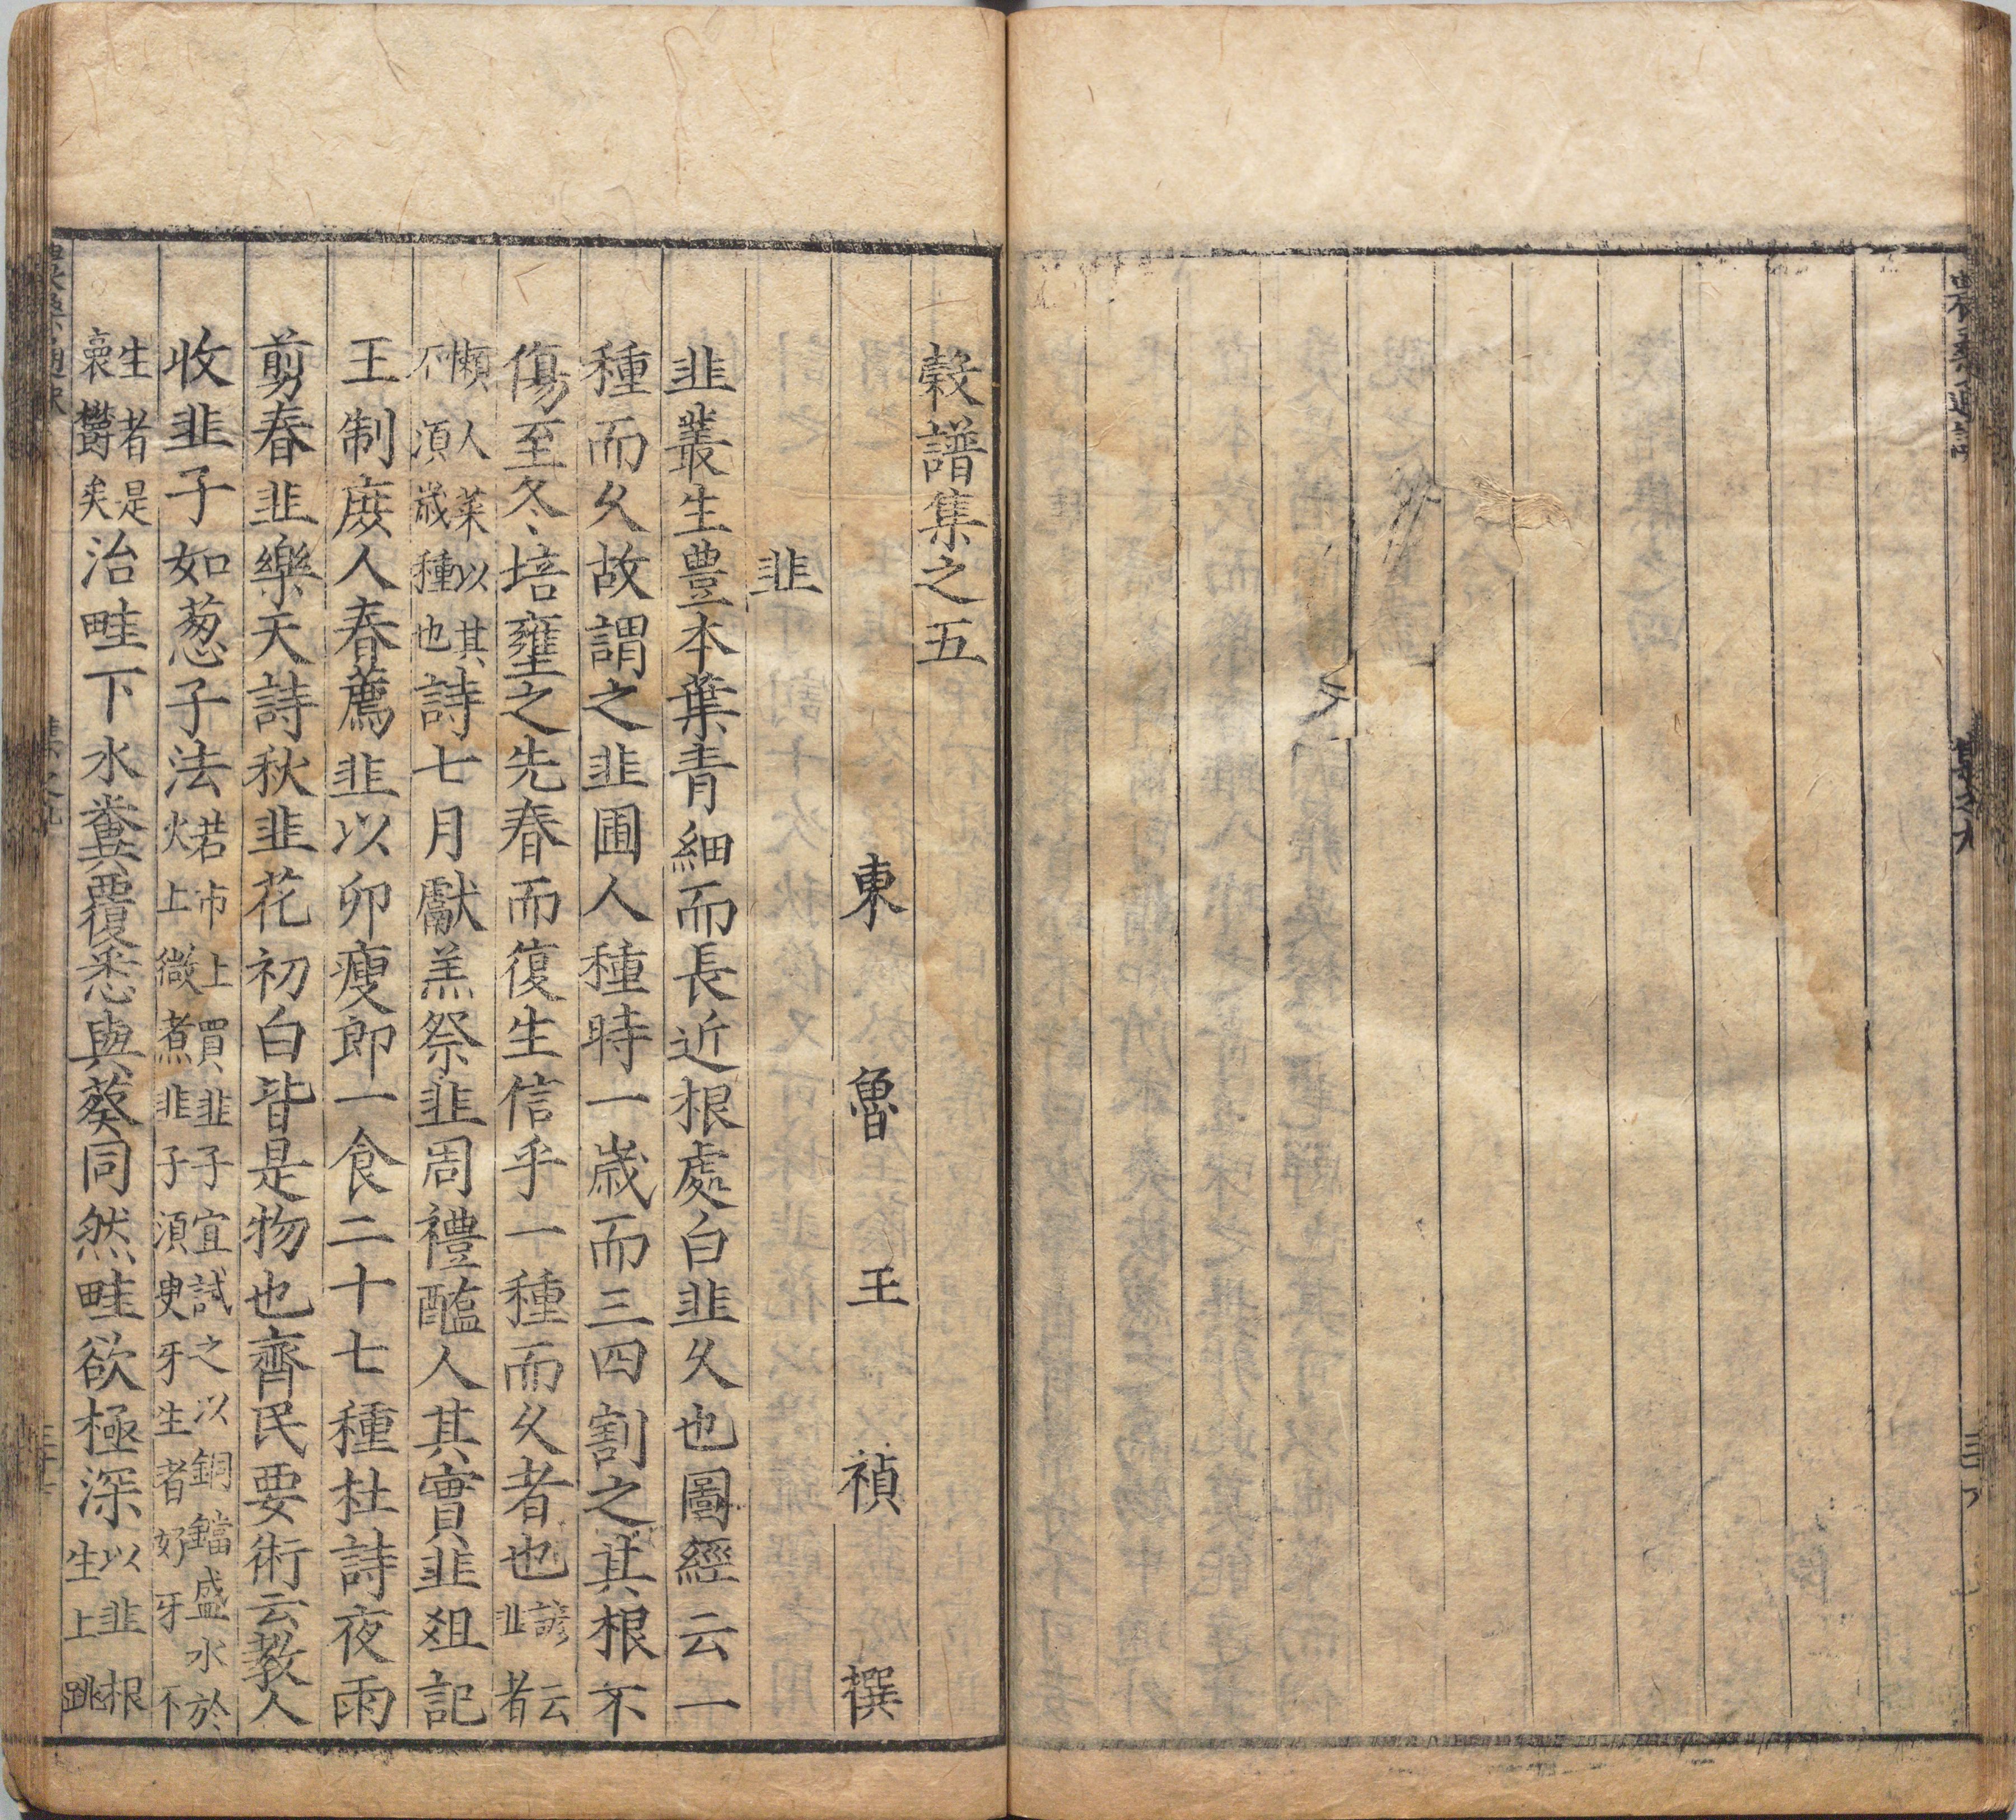 穀譜集之五
東魯王禎撰
韭
韭叢生豊本葉青細而長近根處白韭久也圖經云一
種而久故謂之韭圃人種時一歲而三四割之其根不
傷至冬培壅之先春而復生信乎一種而久者也諺云韭者
懶人菜以其不須歲種也詩七月獻羔祭韭周禮醢人其實韭爼記
王制庶人春薦韭以卵瘦郎一食二十七種杜詩夜雨
剪春韭樂天詩秋韭花初白皆是物也齊民要術云教人
收韭子如葱子法若市上買韭子宜試之以銅鐺盛水於火上微煮韭子須臾牙生者好牙不
生者是裛欝矣治畦下水糞覆悉與葵同然畦欲極深以韭根生上跳